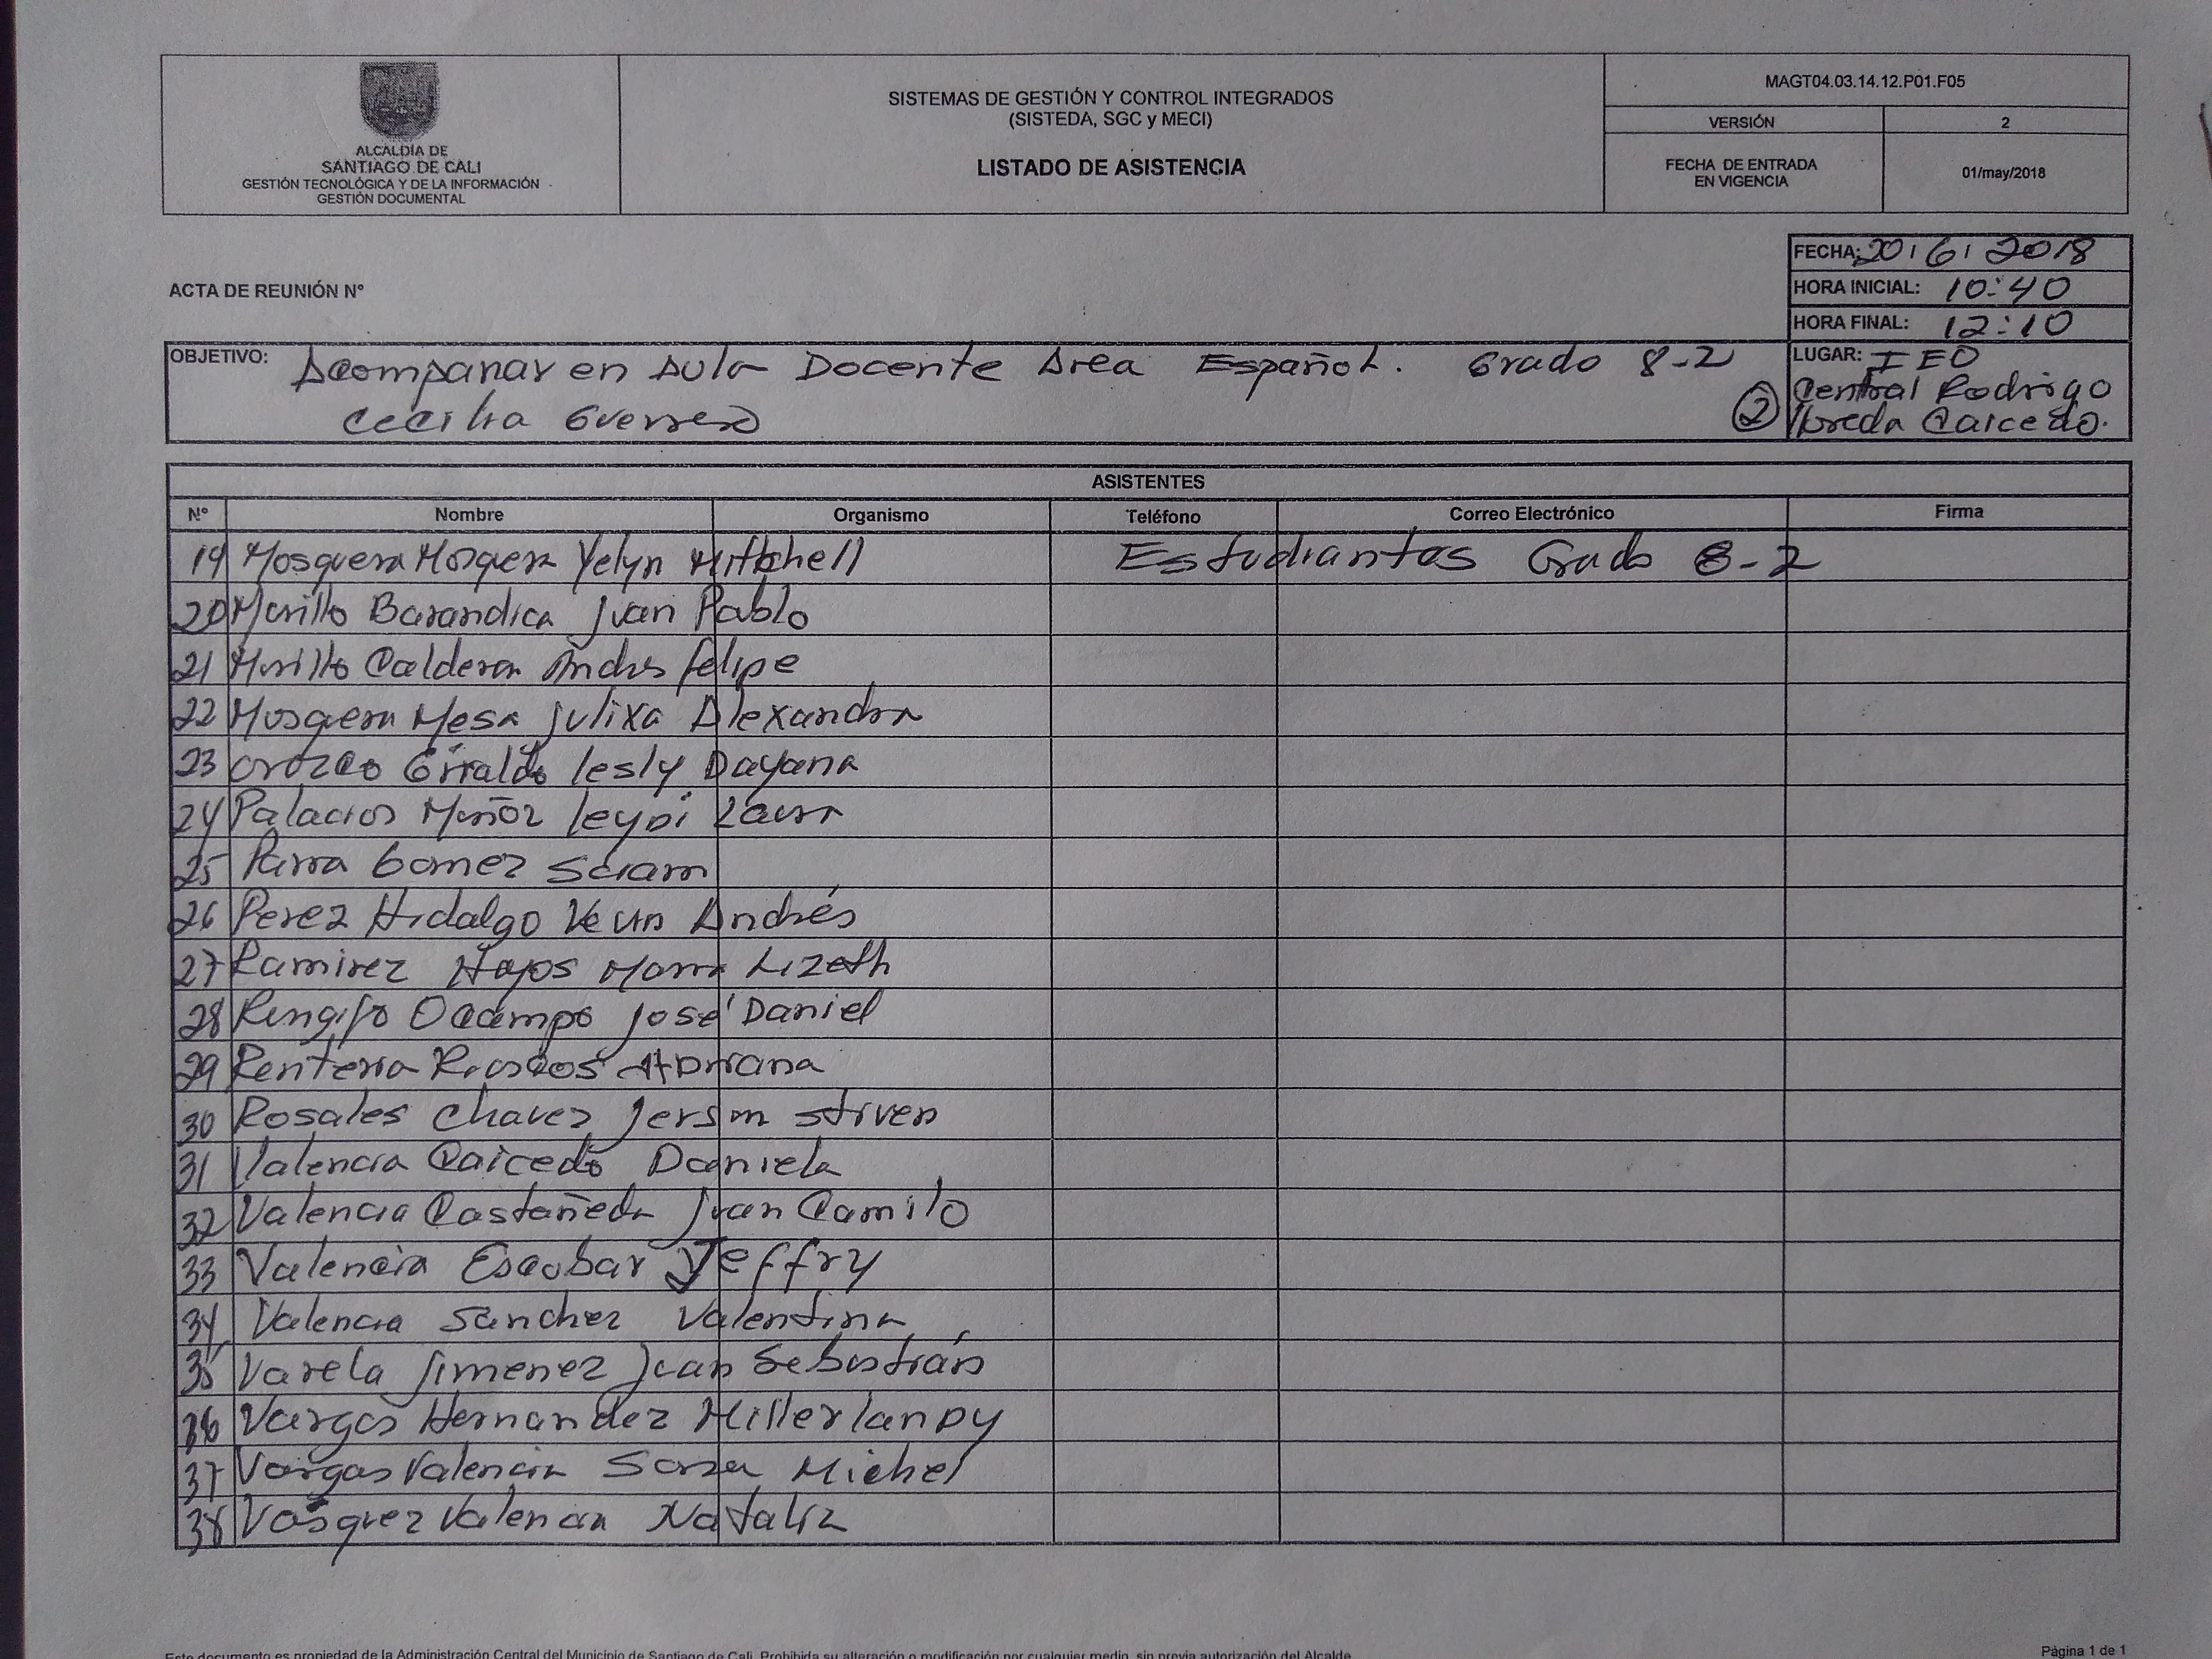 ALCALDÍA DE
SANTIAGO DE CALI
GESTIÓN TECNOLÓGICA Y DE LA INFORMACIÓN
GESTIÓN DOCUMENTAL
SISTEMAS DE GESTIÓN Y CONTROL INTEGRADOS
(SISTEDA, SGC y MECI)
LISTADO DE ASISTENCIA
MAGT04.03.14.12.P01.F05
VERSIÓN 2
FECHA DE ENTRADA
EN VIGENCIA
01/may/2018
ACTA DE REUNIÓN N°
FECHA: 20/6/2018
HORA INICIAL: 10:40
HORA FINAL: 12:10
OBJETIVO: Acompañar en Aula Docente Area Español. Grado 8-2
Cecilia Guerrero
LUGAR: IEO
Central Rodrigo
Lloreda Caicedo.
2
ASISTENTES
N° Nombre Organismo Teléfono Correo Electrónico Firma
19 Mosquera Mosquera Yelyn Mitchell Estudiantes Grado 8-2
20 Murillo Barandica Juan Pablo
21 Murillo Calderon Andres felipe
22 Mosquera Mesa Julixa Alexandra
23 Orozco Giraldo lesly Dayana
24 Palacios Muñoz leydi Laura
25 Parra Gomez
26 Perez Hidalgo Kevin Andrés
27 Ramirez Hoyos Maria Lizeth
28 Rengifo Ocampo José Daniel
29 Renteria Riascos Adriana
30 Rosales Chavez Jerson stiven
31 Valencia Caicedo Daniela
32 Valencia Castañeda Juan Camilo
33 Valencia Escobar Jeffry
34 Valencia Sanchez Valentina
35 Varela Jimenez Juan Sebastián
36 Vargas Hernandez Millerlandy
37 Vargas Valencia Sara Michel
38 Vasquez Valencia Natalia
Este documento es propiedad de la Administración Central del Municipio de Santiago de Cali. Prohibida su alteración o modificación por cualquier medio, sin previa autorización del Alcalde.
Página 1 de 1